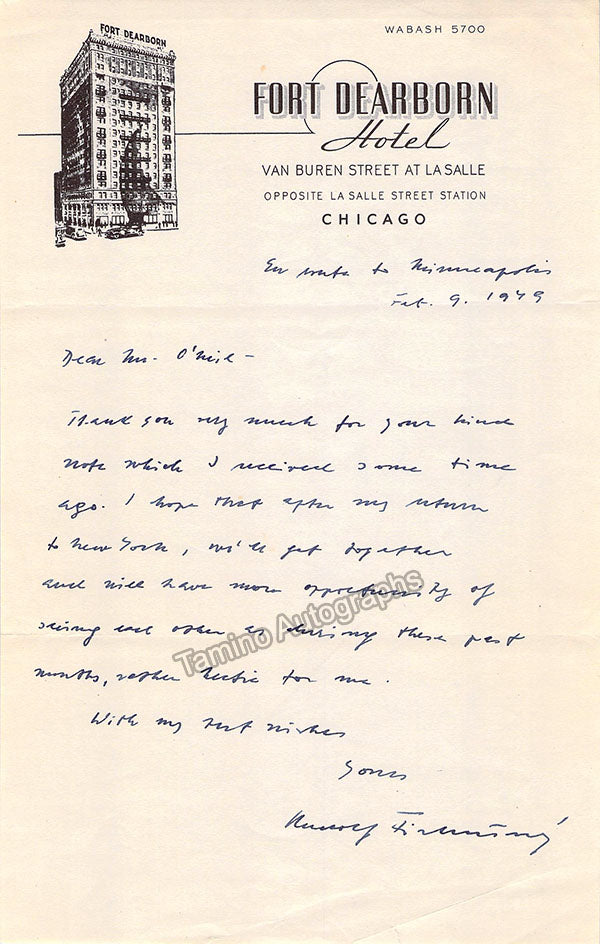 FORT DEARBORN
WABASH 5700
FORT DEARBORN
Hotel
VAN BUREN STREET AT LA SALLE
OPPOSITE LA SALLE STREET STATION
CHICAGO
En route to Minneapolis
Feb. 9. 1949
Dear Mr. O'Neil -
Thank you very much for your kind
note which I received some time
ago. I hope that after my return
to New York, we'll get together
and will have more opportunity of
seeing each other as during these past
months, rather hectic for me.
With my best wishes
Yours
Rudolf Firkušný
Tamino Autographs